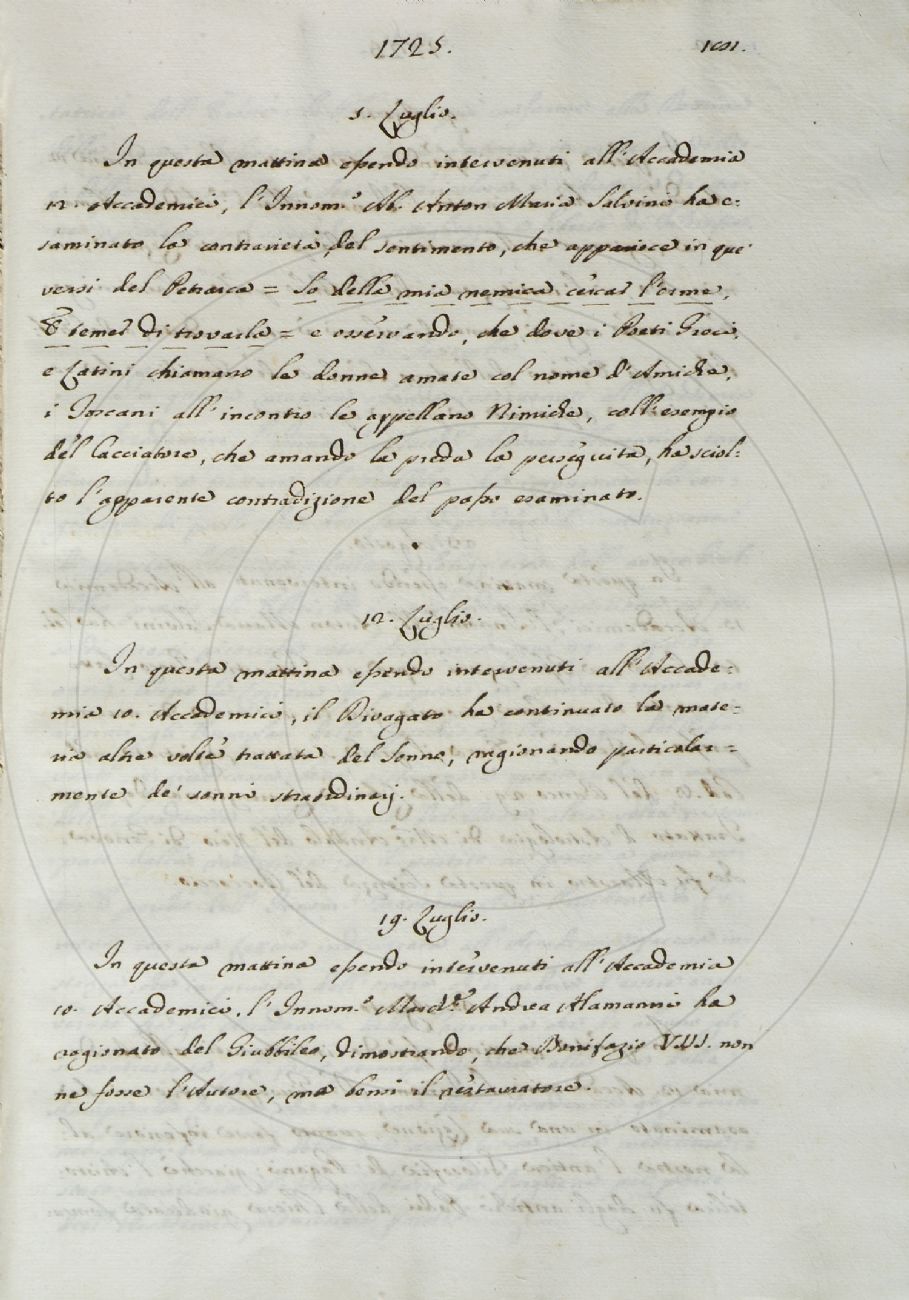 1725.
5. Luglio.
In questa mattina essendo intervenuti all'Accademia
12. Accademici, l'Innom.º Ab. Anton Maria Salvini ha e-
saminato la contrarietà del sentimento, che apparisce in que'
versi del Petrarca = So della mia nemica cercar l'orme,
E temer di trovarla = e osservando, che dove i Poeti Greci,
e Latini chiamano le donne amate col nome d'Amiche,
i Toscani all'incontro le appellano Nimiche, coll'esempio
del Cacciatore, che amando la preda la perseguita, ha sciol-
to l'apparente contradizione del passo esaminato.
12. Luglio.
In questa mattina essendo intervenuti all'Accade-
mia 10. Accademici, il Divagato ha continuato la mate-
ria altre volte trattata del Sonno, ragionando particolar-
mente de' sonni straordinarj.
19. Luglio.
In questa mattina essendo intervenuti all'Accademia
10. Accademici, l'Innom.º March.e Andrea Alamanni ha
ragionato del Giubbileo, dimostrando, che Bonifazio VIII. non
ne fosse l'Autore, ma bensì il restauratore.